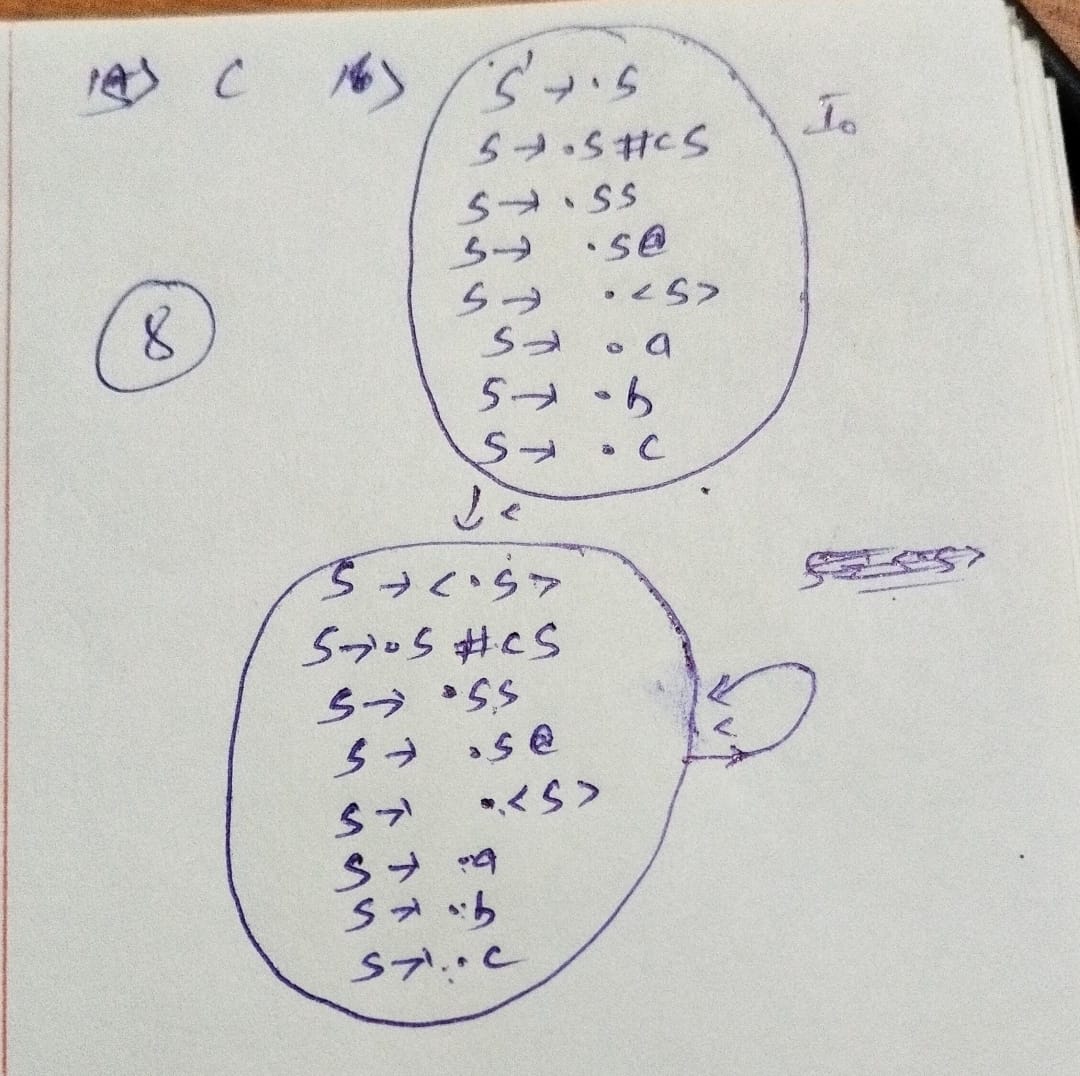 14) C 16) S' → .S
I₀
S → .S #cS
S → .SS
S → .S@
S → .<S>
8
S → .a
S → .b
S → .c
↓ <
S → <.S>
S → .S #cS
S → .SS
<
S → .S@
S → .<S>
S → .a
S → .b
S → .c